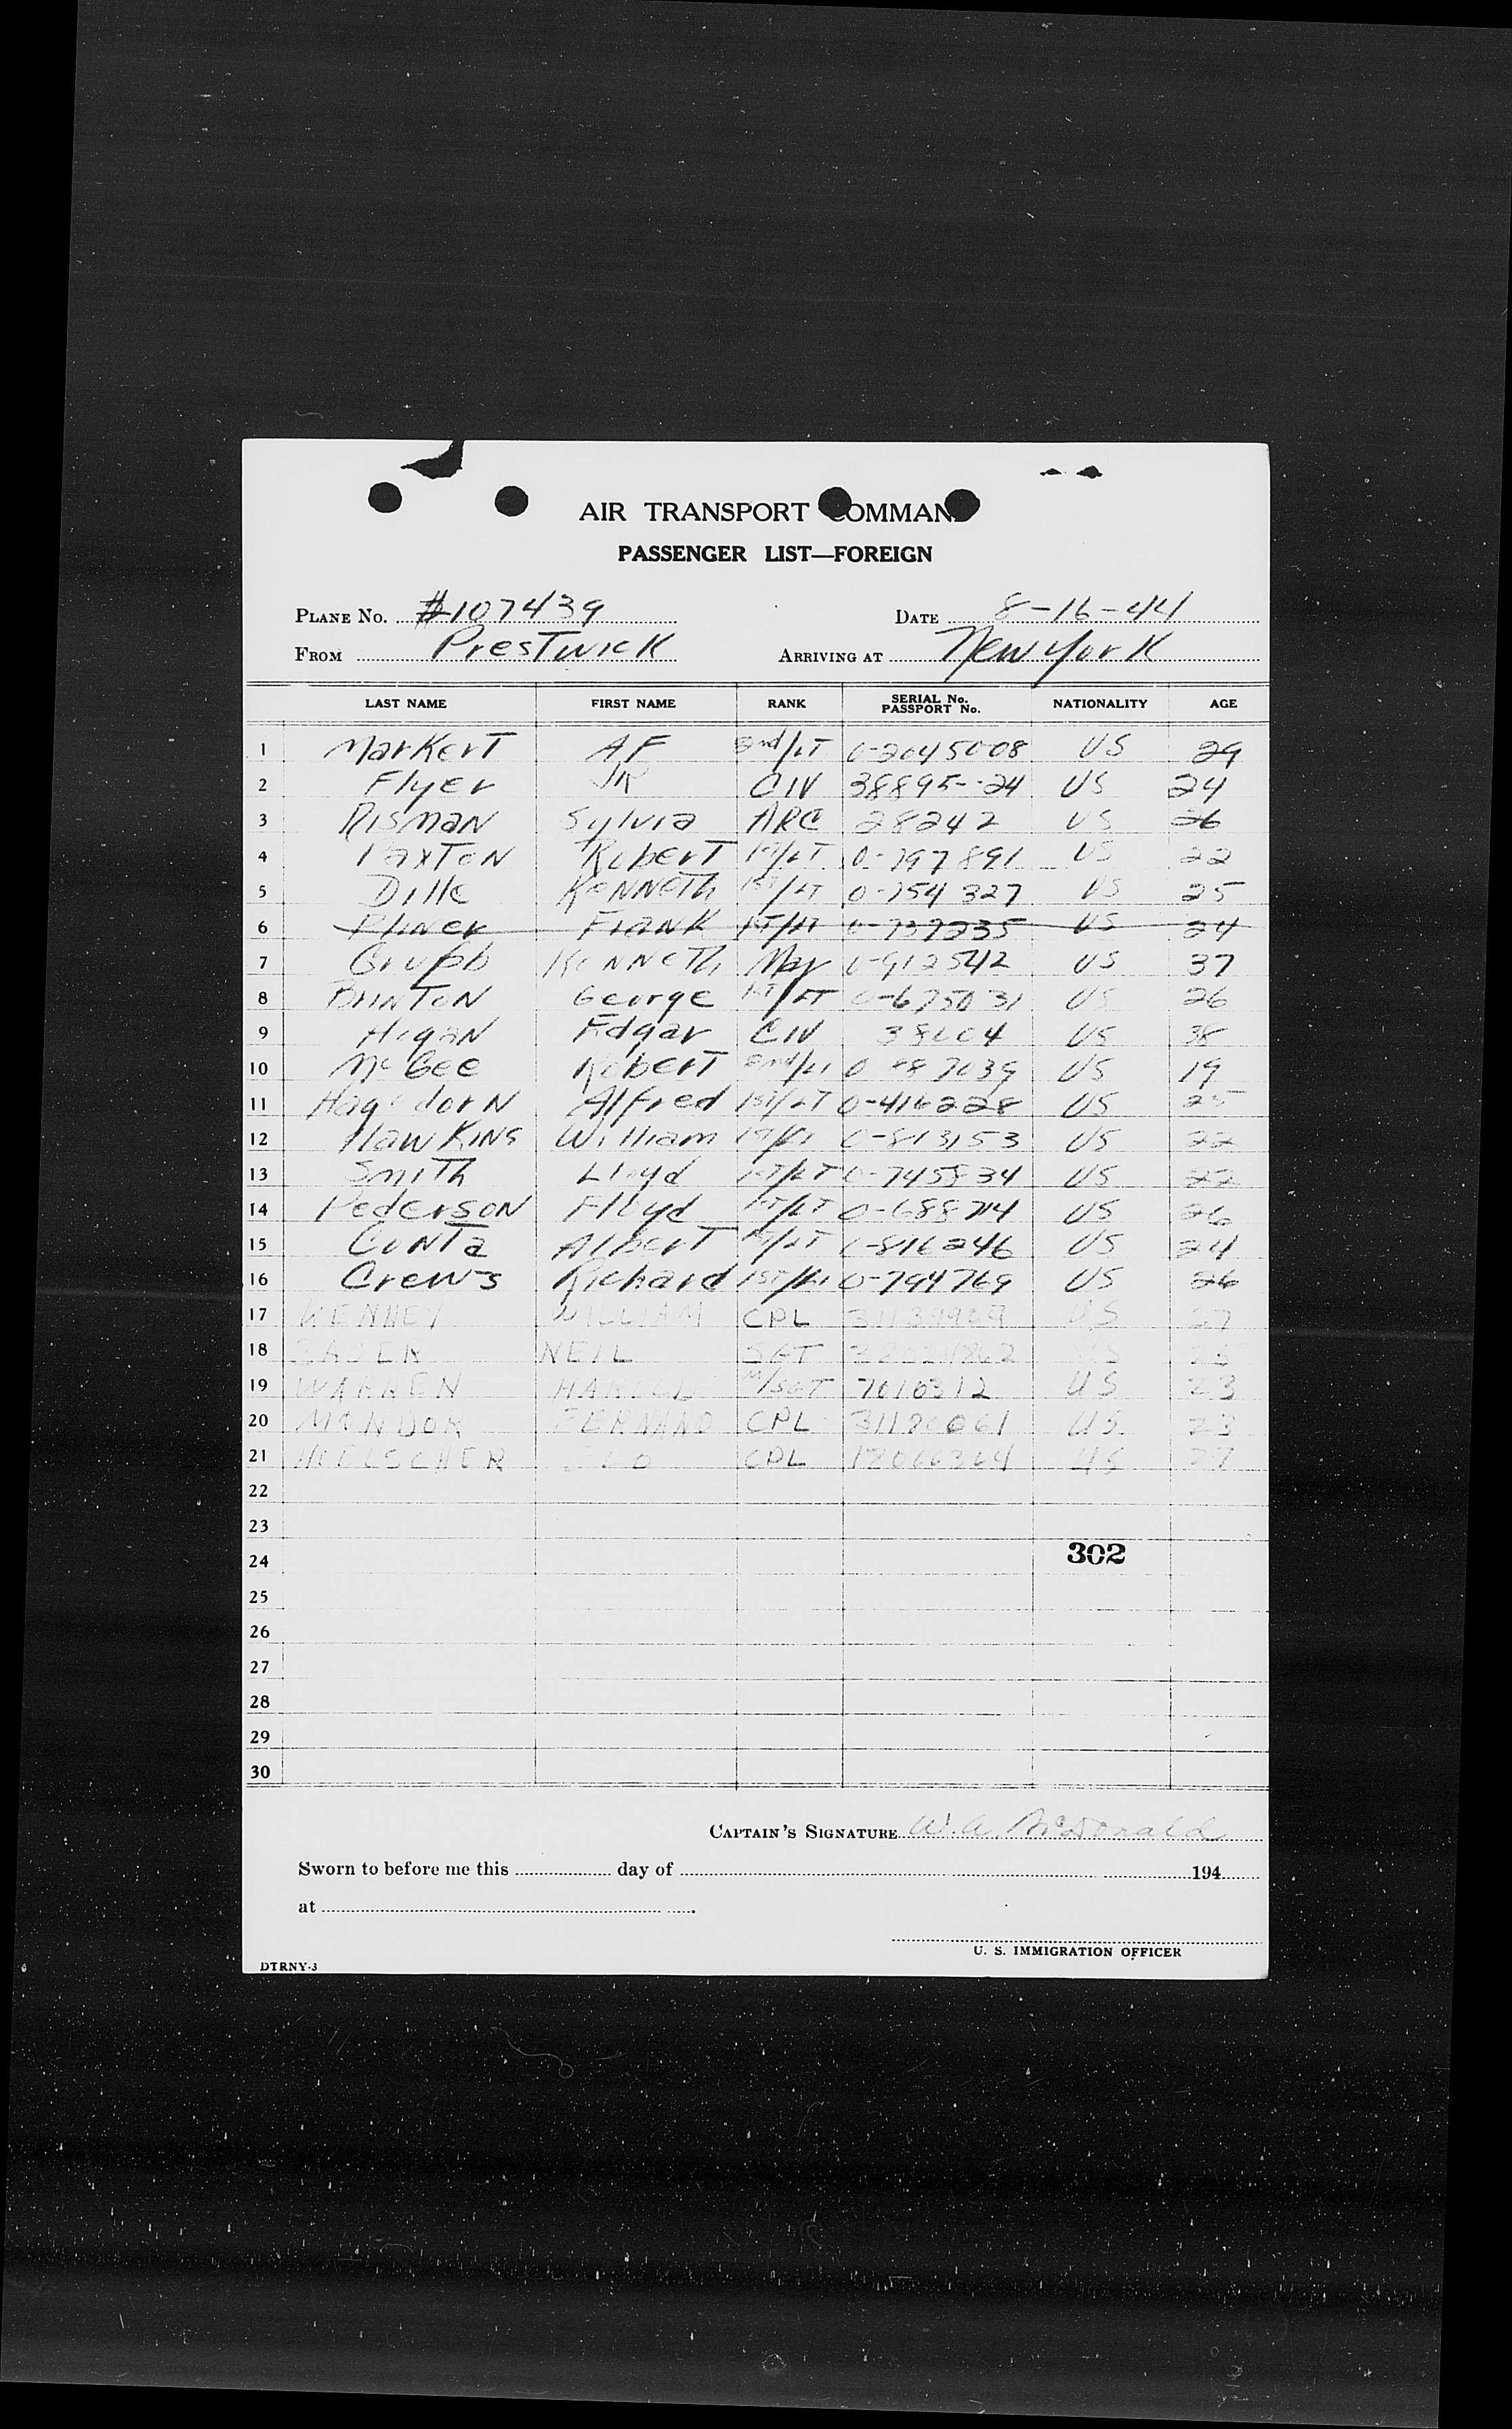 AIR TRANSPORT COMMAND
PASSENGER LIST—FOREIGN
PLANE No. #107439 DATE 8-16-44
FROM Prestwick ARRIVING AT New York
LAST NAME FIRST NAME RANK SERIAL No. PASSPORT No. NATIONALITY AGE
1 Markert AF 2nd/LT 0-2045008 US 29
2 Flyer JR CIV 38895 24 US 24
3 Risman Sylvia ARC 28242 US 26
4 Paxton Robert 1st/LT 0-797891 US 22
5 Dille Kenneth 1st/LT 0-754327 US 25
6 Pliner Frank 1st/LT 0-737235 US 24
7 Grubb Kenneth Maj 0-912542 US 37
8 Brinton George 1st/LT 0-675031 US 26
9 Hogan Edgar CIV 38604 US 38
10 McGee Robert 2nd/LT US 19
11 Hagedorn Alfred 1st/LT 0-416228 US 25
12 Hawkins William 1st/LT 0-813153 US 22
13 Smith Lloyd 1st/LT 0-745834 US 22
14 Pederson Floyd 1st/LT 0-688714 US 26
15 Conta Albert 1st/LT 0-816246 US 24
16 Crews Richard 1st/LT 0-794769 US 26
17 KENNEY WILLIAM CPL 31139909 US 27
18 NEIL SGT US
19 WARREN HAROLD M/SGT 7010312 US 23
20 MONDOR FERNAND CPL 31180061 US 23
21 HOELSCHER CPL 18066364 US 27
22
23
24 302
25
26
27
28
29
30
CAPTAIN'S SIGNATURE W. A. McDonald
Sworn to before me this day of 194
at
U. S. IMMIGRATION OFFICER
DTRNY-3